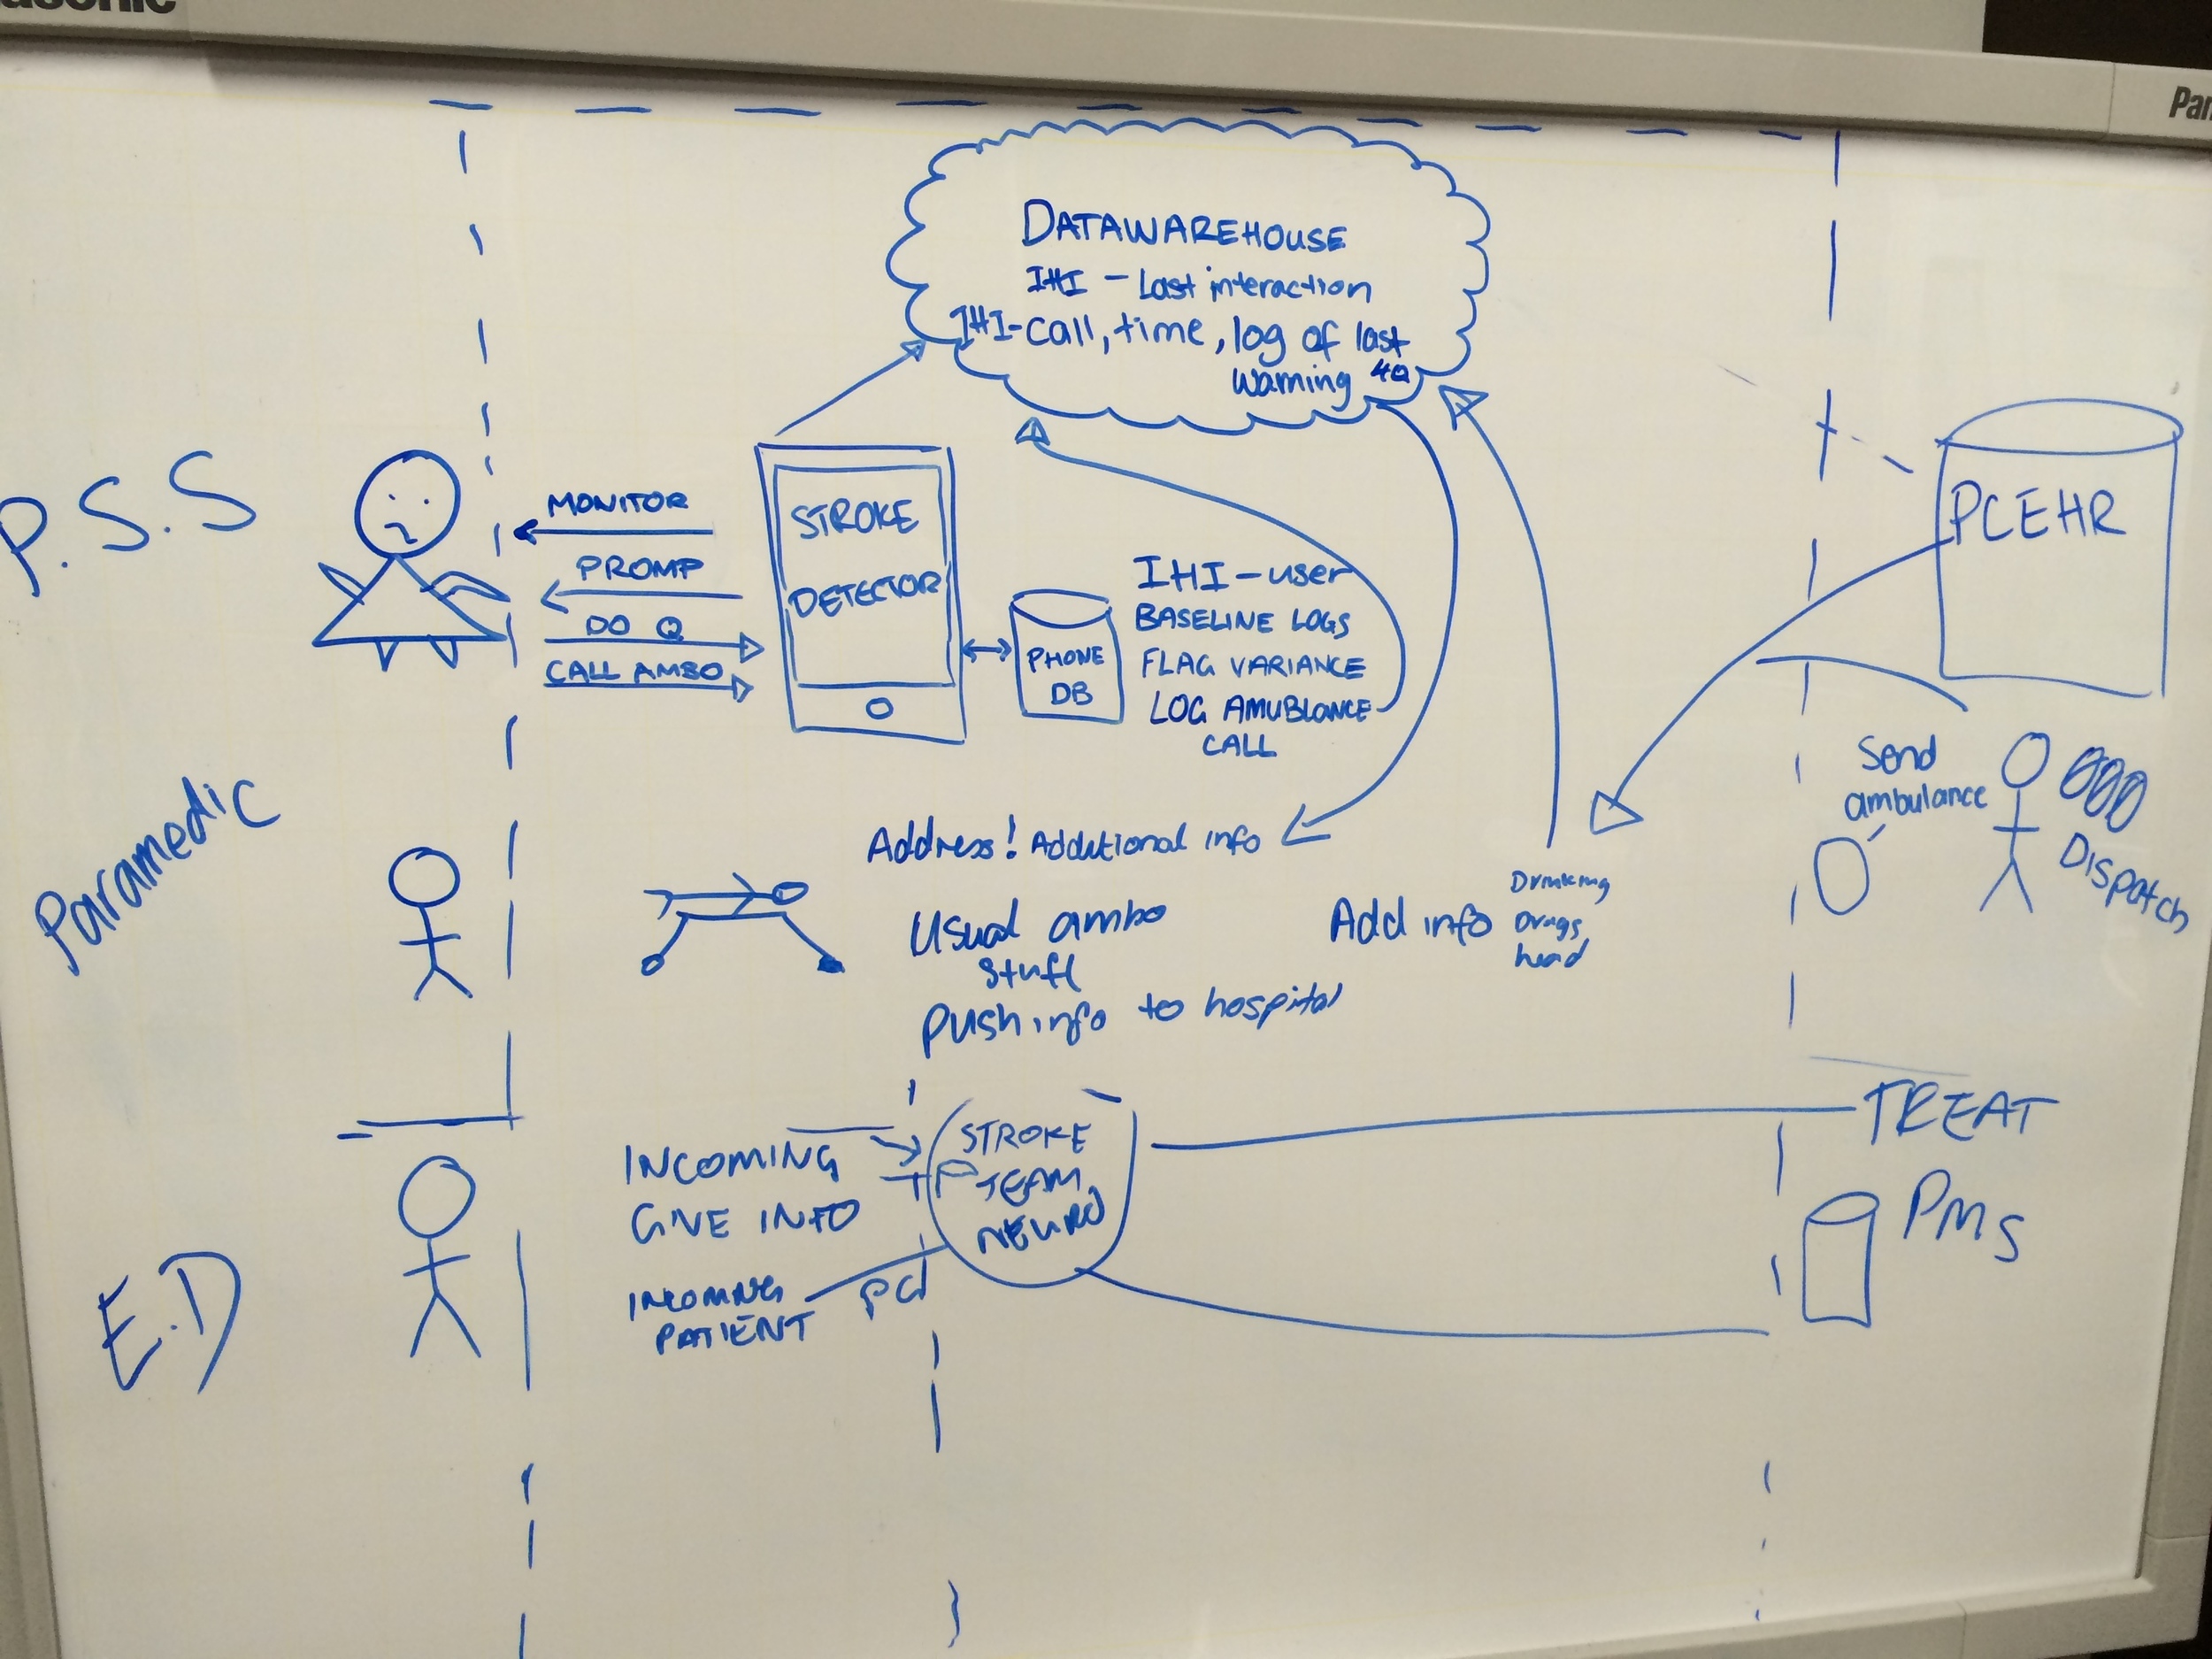 DATAWAREHOUSE
IHI - Last interaction
IHI-call, time, log of last
warning 4Q
P.S.S
MONITOR
PROMP
DO Q
CALL AMBO
STROKE
DETECTOR
PHONE
DB
IHI-user
BASELINE LOGS
FLAG VARIANCE
LOG AMUBLANCE
CALL
PCEHR
Send
ambulance
Dispatch
Paramedic
Address! Additional info
Usual ambo
stuff
Push info to hospital
Add info
Drinking
Drugs
head
E.D
INCOMING
GIVE INFO
INCOMING
PATIENT
STROKE
TEAM
NEURO
TREAT
PMS